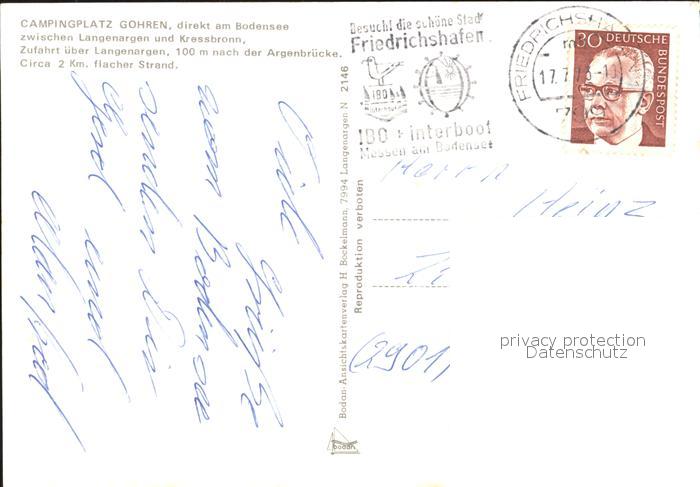 CAMPINGPLATZ GOHREN, direkt am Bodensee
zwischen Langenargen und Kressbronn,
Zufahrt über Langenargen, 100 m nach der Argenbrücke.
Circa 2 Km. flacher Strand.
Besucht die schöne Stadt
Friedrichshafen
IBO
IBO + interboot
Messen am Bodensee
FRIEDRICHSHA
17.7.73-1
799
30 DEUTSCHE
BUNDESPOST
Viele
Grüße
vom Bodensee
senden Dir
Gerd und
Bodan-Ansichtskartenverlag H. Bockelmann, 7994 Langenargen N 2146
Reproduktion verboten
bodan
Herrn
Heinz
(2901,
privacy protection
Datenschutz